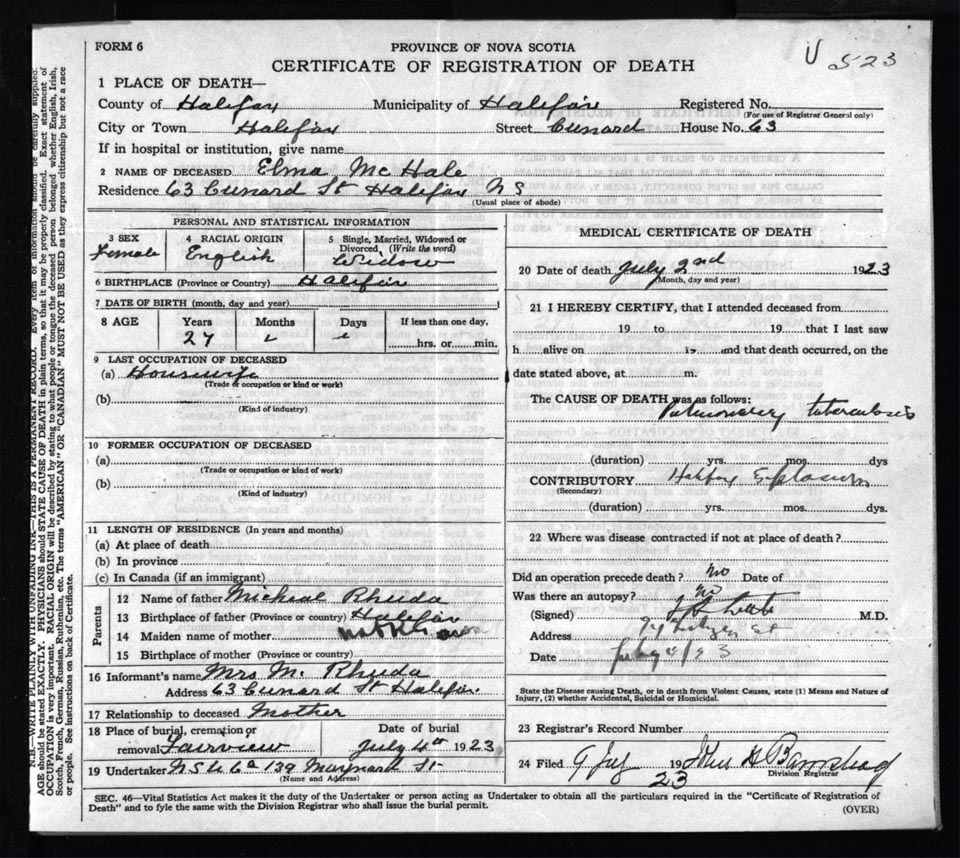 FORM 6
PROVINCE OF NOVA SCOTIA
CERTIFICATE OF REGISTRATION OF DEATH
U 523
1 PLACE OF DEATH—
County of Halifax Municipality of Halifax Registered No.
(For use of Registrar General only)
City or Town Halifax Street Cunard House No. 63
If in hospital or institution, give name
2 NAME OF DECEASED Elma McHale
Residence 63 Cunard St Halifax NS
(Usual place of abode)
PERSONAL AND STATISTICAL INFORMATION
3 SEX Female
4 RACIAL ORIGIN English
5 Single, Married, Widowed or Divorced, (Write the word) Widow
6 BIRTHPLACE (Province or Country) Halifax
7 DATE OF BIRTH (month, day and year)
8 AGE Years Months Days If less than one day,
27 hrs. or min.
9 LAST OCCUPATION OF DECEASED
(a) Housewife
(Trade or occupation or kind or work)
(b)
(Kind of industry)
10 FORMER OCCUPATION OF DECEASED
(a)
(Trade or occupation or kind of work)
(b)
(Kind of industry)
11 LENGTH OF RESIDENCE (In years and months)
(a) At place of death
(b) In province
(c) In Canada (if an immigrant)
Parents
12 Name of father Micheal Rhuda
13 Birthplace of father (Province or country) Halifax
14 Maiden name of mother
15 Birthplace of mother (Province or country)
16 Informant's name Mrs M. Rhuda
Address 63 Cunard St Halifax
17 Relationship to deceased Mother
18 Place of burial, cremation or removal Fairview
Date of burial July 4th 1923
19 Undertaker N S U Co 139 Maynard St
(Name and Address)
MEDICAL CERTIFICATE OF DEATH
20 Date of death July 2nd 1923
(Month, day and year)
21 I HEREBY CERTIFY, that I attended deceased from
19 to 19 that I last saw
h alive on 19 and that death occurred, on the
date stated above, at m.
The CAUSE OF DEATH was as follows:
Pulmonary tuberculosis
(duration) yrs. mos. dys
CONTRIBUTORY Halifax Explosion
(Secondary)
(duration) yrs. mos. dys.
22 Where was disease contracted if not at place of death?
Did an operation precede death? No Date of
Was there an autopsy? No
(Signed) M.D.
Address
Date
State the Disease causing Death, or in death from Violent Causes, state (1) Means and Nature of
Injury, (2) whether Accidental, Suicidal or Homicidal.
23 Registrar's Record Number
24 Filed 9 July 1923
Division Registrar
SEC. 46—Vital Statistics Act makes it the duty of the Undertaker or person acting as Undertaker to obtain all the particulars required in the "Certificate of Registration of
Death" and to fyle the same with the Division Registrar who shall issue the burial permit.
(OVER)
N.B.—WRITE PLAINLY WITH UNFADING INK—THIS IS A PERMANENT RECORD. Every item of information should be carefully supplied.
AGE should be stated EXACTLY. PHYSICIANS should STATE CAUSE OF DEATH in plain terms, so that it may be properly classified. Exact statement of
OCCUPATION is very important. RACIAL ORIGIN will be described by stating to what people or tongue the deceased person belonged whether English, Irish,
Scotch, French, German, Russian, Ruthenian, etc. The terms "AMERICAN" OR "CANADIAN" MUST NOT BE USED as they express citizenship but not a race
or people. See instructions on back of Certificate.